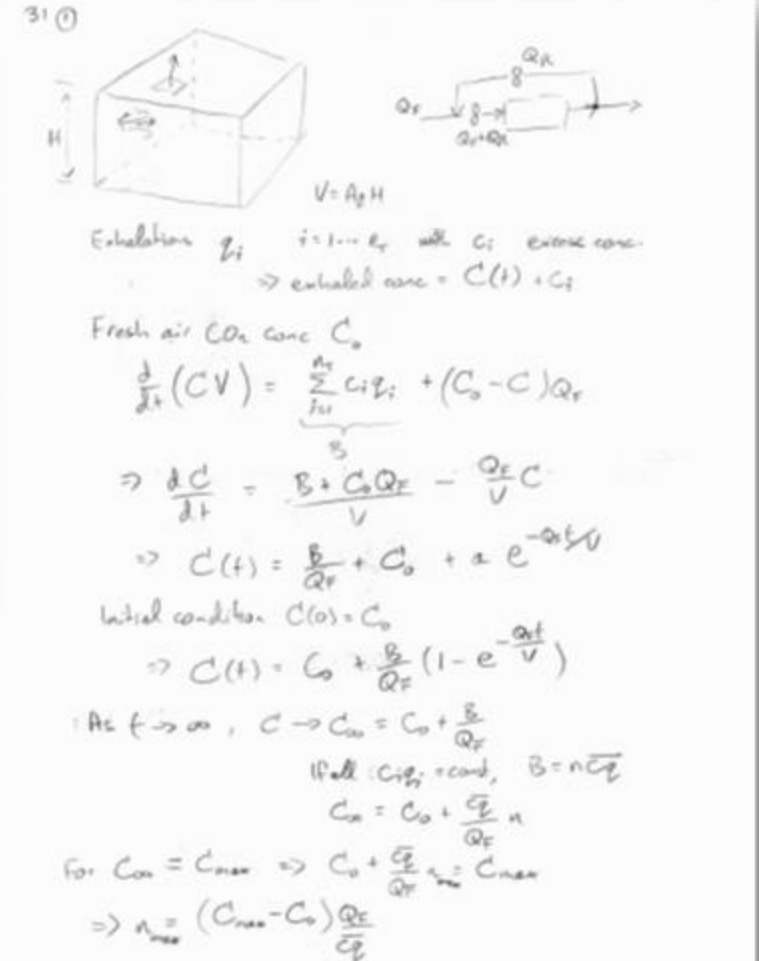 31 ①
Q_R
Q_F
Q_F+Q_R
H
V = A_f H
Exhalations q_i i = 1 ... n_T with c_i excess conc.
=> exhaled conc = C(t) + c_i
Fresh air CO₂ conc C_o
d/dt (CV) = Σ_{i=1}^{n_T} c_i q_i + (C_o - C) Q_F
B
=> dC/dt = (B + C_o Q_F)/V - (Q_F/V) C
=> C(t) = B/Q_F + C_o + a e^{-Q_F t/V}
Initial condition C(0) = C_o
=> C(t) = C_o + B/Q_F (1 - e^{-Q_F t/V})
As t -> ∞, C -> C_∞ = C_o + B/Q_F
If all c_i q_i = const, B = n \overline{cq}
C_∞ = C_o + \overline{cq}/Q_F n
For C_∞ = C_max => C_o + \overline{cq}/Q_F n_max = C_max
=> n_max = (C_max - C_o) Q_F/\overline{cq}